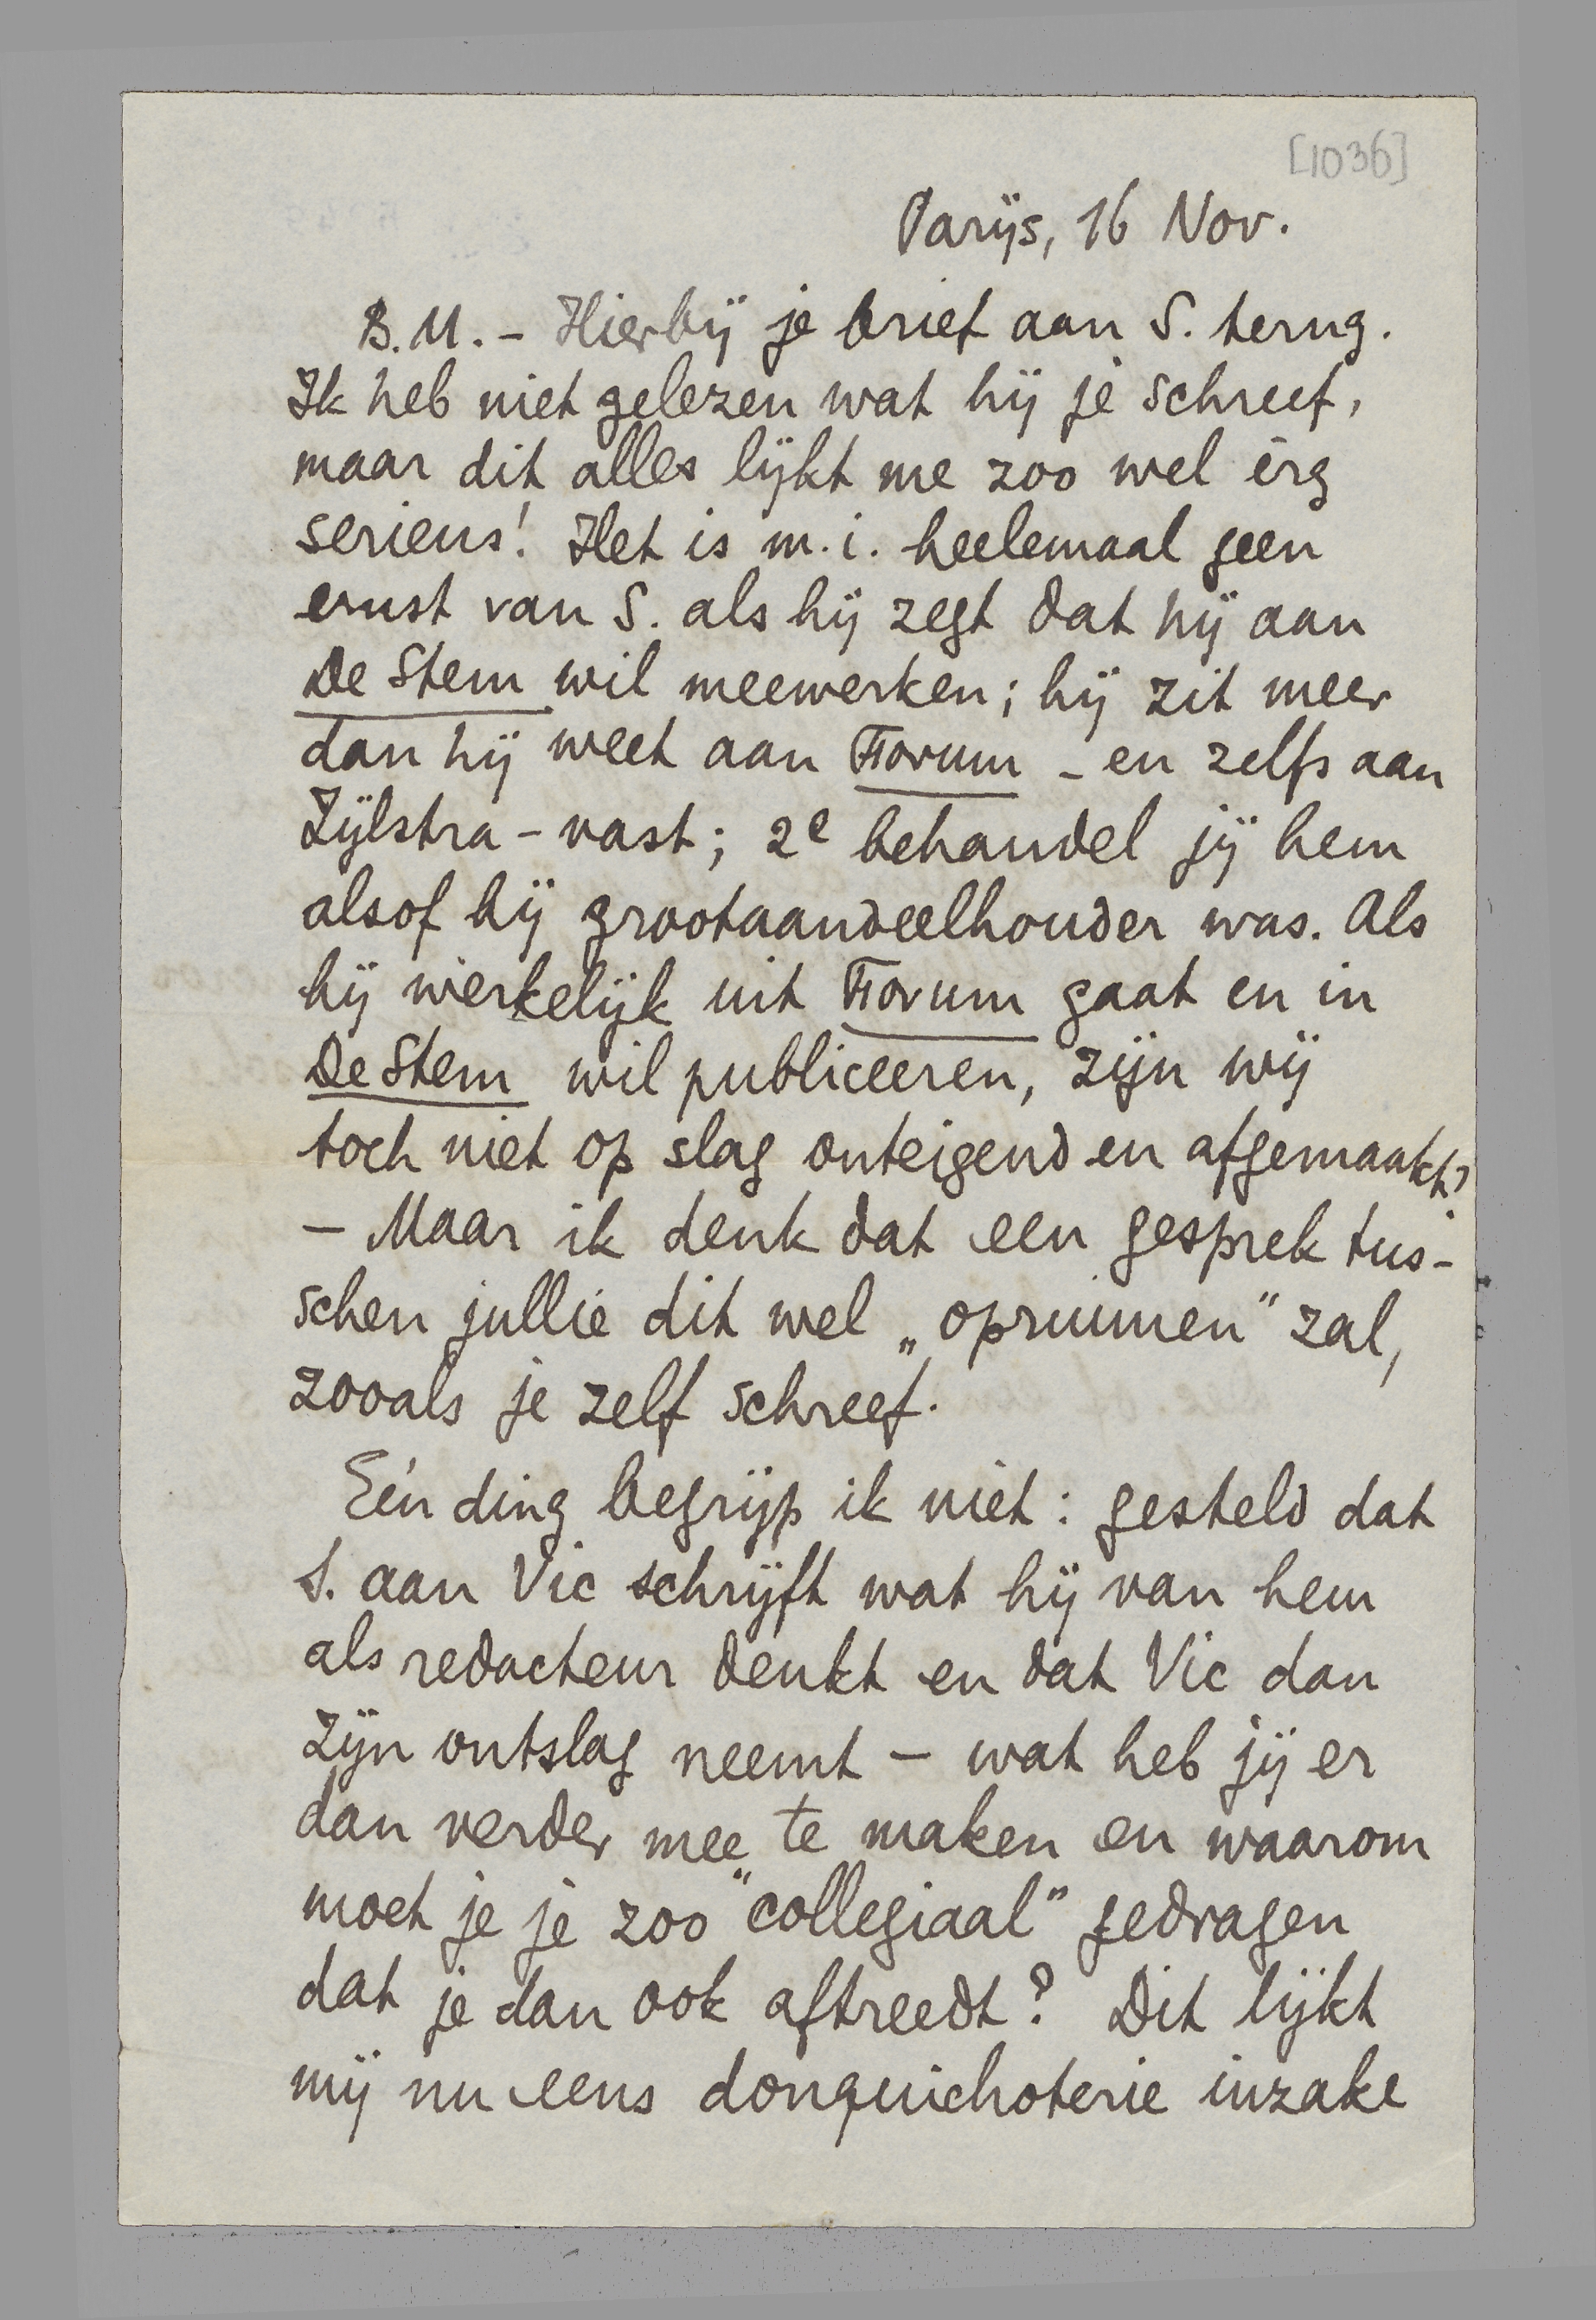 [1036]
Parijs, 16 Nov.
B.M. - Hierbij je brief aan S. terug.
Ik heb niet gelezen wat hij je schreef,
maar dit alles lijkt me zoo wel èrg
serieus! Het is m.i. heelemaal geen
ernst van S. als hij zegt dat hij aan
De Stem wil meewerken; hij zit meer
dan hij weet aan Forum - en zelfs aan
Zijlstra - vast; 2e behandel jij hem
alsof hij grootaandeelhouder was. Als
hij wèrkelijk uit Forum gaat en in
De Stem wil publiceeren, zijn wij
toch niet op slag onteigend en afgemaakt?
- Maar ik denk dat een gesprek tus-
schen jullie dit wel „opruimen" zal,
zooals je zelf schreef.
Eén ding begrijp ik niet: gesteld dat
S. aan Vic schrijft wat hij van hem
als redacteur denkt en dat Vic dan
zijn ontslag neemt - wat heb jij er
dan verder mee te maken en waarom
moet je je zoo "collegiaal" gedragen
dat je dan ook aftreedt? Dit lijkt
mij nu eens donquichoterie inzake